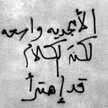 الأبجدية واسعة
لكن الكلام
قد إهترأ